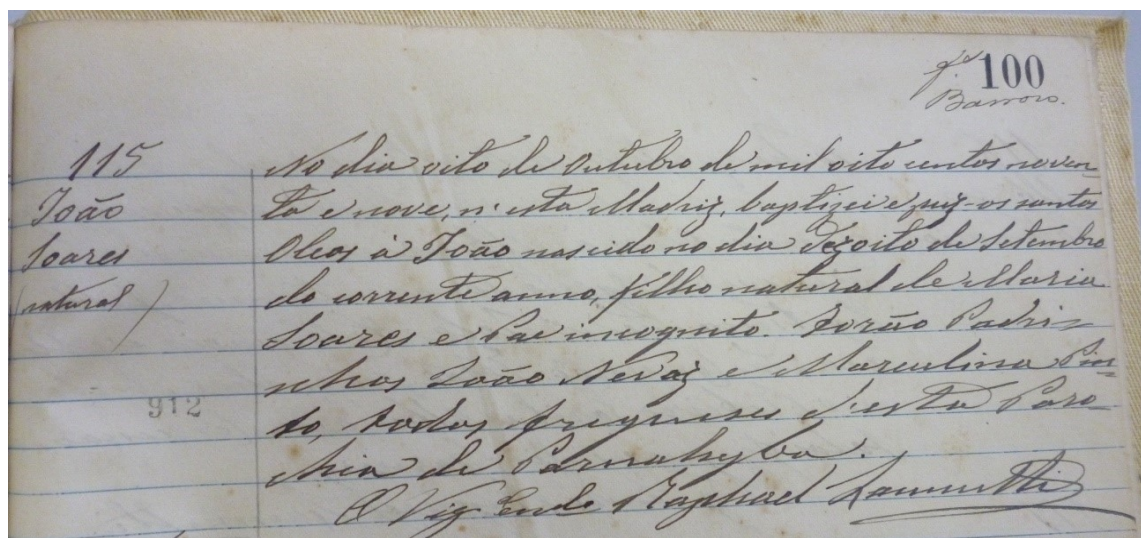 100
Barros.
115
João
Soares
(natural)
912
No dia oito de Outubro de mil oito centos noven-
ta e nove, n'esta Madriz, baptizei e puz-os santos
Oleos à João nascido no dia dezoito de Setembro
do corrente anno, filho natural de Maria
Soares e Pae incognito. Forão Padri-
nhos João e Marculina Pin-
to, todos freguezes d'esta Paro-
chia de Parnahyba.
O Vig Raphael